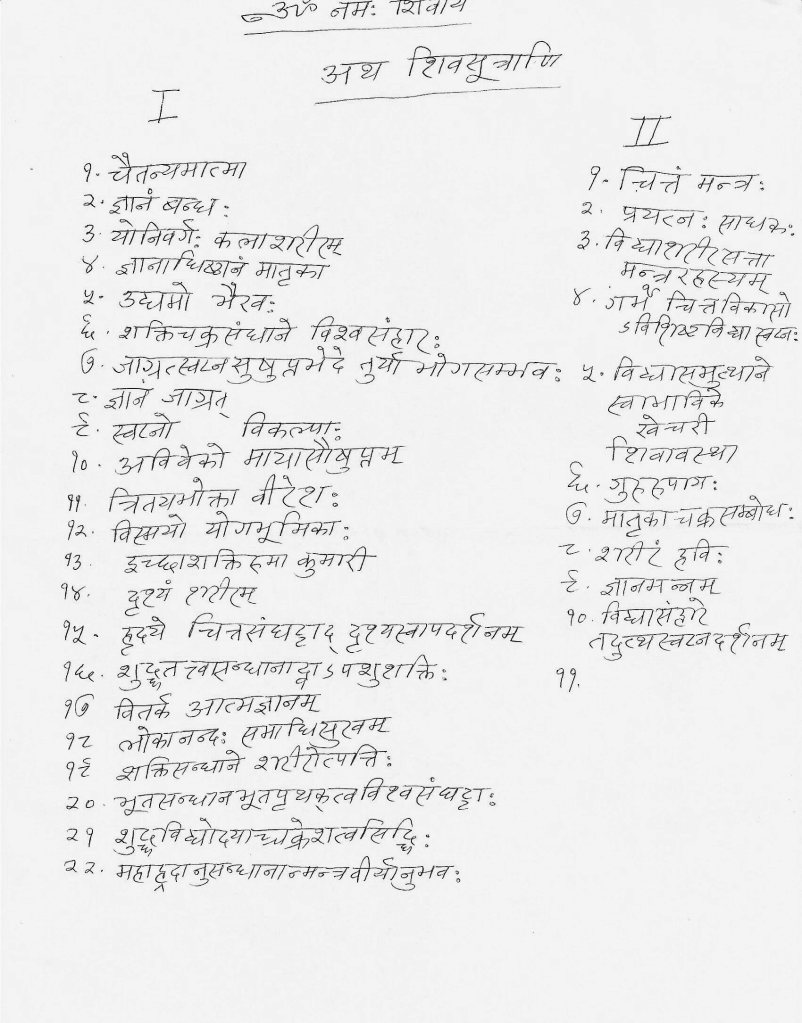 ॐ नमः शिवाय
अथ शिवसूत्राणि
I
१. चैतन्यमात्मा
२. ज्ञानं बन्धः
३. योनिवर्गः कलाशरीरम्
४. ज्ञानाधिष्ठानं मातृका
५. उद्यमो भैरवः
६. शक्तिचक्रसंधाने विश्वसंहारः
७. जाग्रत्स्वप्नसुषुप्तभेदे तुर्याभोगसम्भवः
८. ज्ञानं जाग्रत्
९. स्वप्नो विकल्पाः
१०. अविवेको मायासौषुप्तम्
११. त्रितयभोक्ता वीरेशः
१२. विस्मयो योगभूमिकाः
१३. इच्छाशक्तिरुमा कुमारी
१४. दृश्यं शरीरम्
१५. हृदये चित्तसंघट्टाद् दृश्यस्वापदर्शनम्
१६. शुद्धतत्त्वसन्धानाद्वाऽपशुशक्तिः
१७ वितर्क आत्मज्ञानम्
१८ लोकानन्दः समाधिसुखम्
१९ शक्तिसन्धाने शरीरोत्पत्तिः
२०. भूतसन्धानभूतपृथक्त्वविश्वसंघट्टाः
२१ शुद्धविद्योदयाच्चक्रेशत्वसिद्धिः
२२. महाह्रदानुसन्धानान्मन्त्रवीर्यानुभवः
II
१. चित्तं मन्त्रः
२. प्रयत्नः साधकः
३. विद्याशरीरसत्ता
मन्त्ररहस्यम्
४. गर्भे चित्तविकासो
ऽविशिष्टविद्यास्वप्नः
५. विद्यासमुत्थाने
स्वाभाविके
खेचरी
शिवावस्था
६. गुरुरुपायः
७. मातृकाचक्रसम्बोधः
८. शरीरं हविः
९. ज्ञानमन्नम्
१०. विद्यासंहारे
तदुत्थस्वप्नदर्शनम्
११.